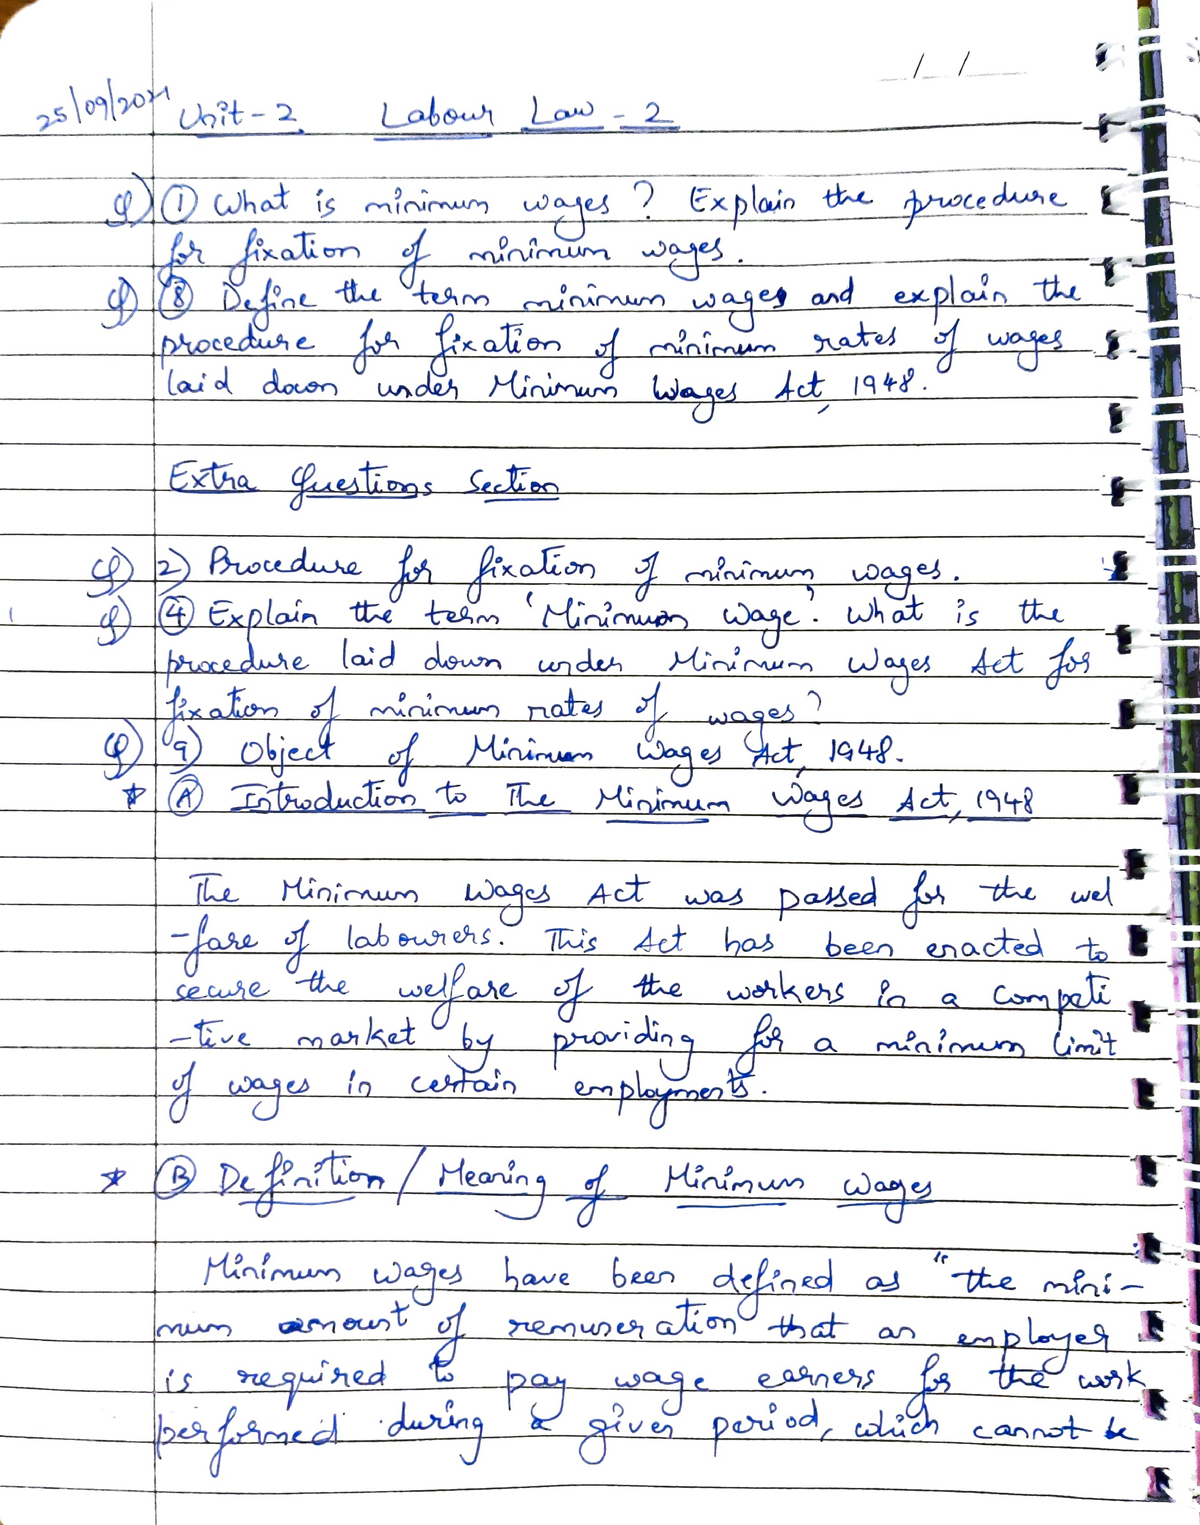 / /
25/09/2021 Unit-2 Labour Law - 2
Q) ① What is minimum wages ? Explain the procedure
for fixation of minimum wages.
Q) ⑧ Define the term minimum wages and explain the
procedure for fixation of minimum rates of wages
laid down under Minimum Wages Act, 1948.
Extra Questions Section
Q) 2) Procedure for fixation of minimum wages.
Q) ④ Explain the term 'Minimum Wage'. What is the
procedure laid down under Minimum Wages Act for
fixation of minimum rates of wages?
Q) 9) Object of Minimum Wages Act, 1948.
* Ⓐ Introduction to The Minimum Wages Act, 1948
The Minimum Wages Act was passed for the wel
-fare of labourers. This Act has been enacted to
secure the welfare of the workers in a competi
-tive market by providing for a minimum limit
of wages in certain employments.
* Ⓑ Definition / Meaning of Minimum Wages
Minimum wages have been defined as "the mini-
mum amount of remuneration that an employer
is required to pay wage earners for the work
performed during a given period, which cannot be